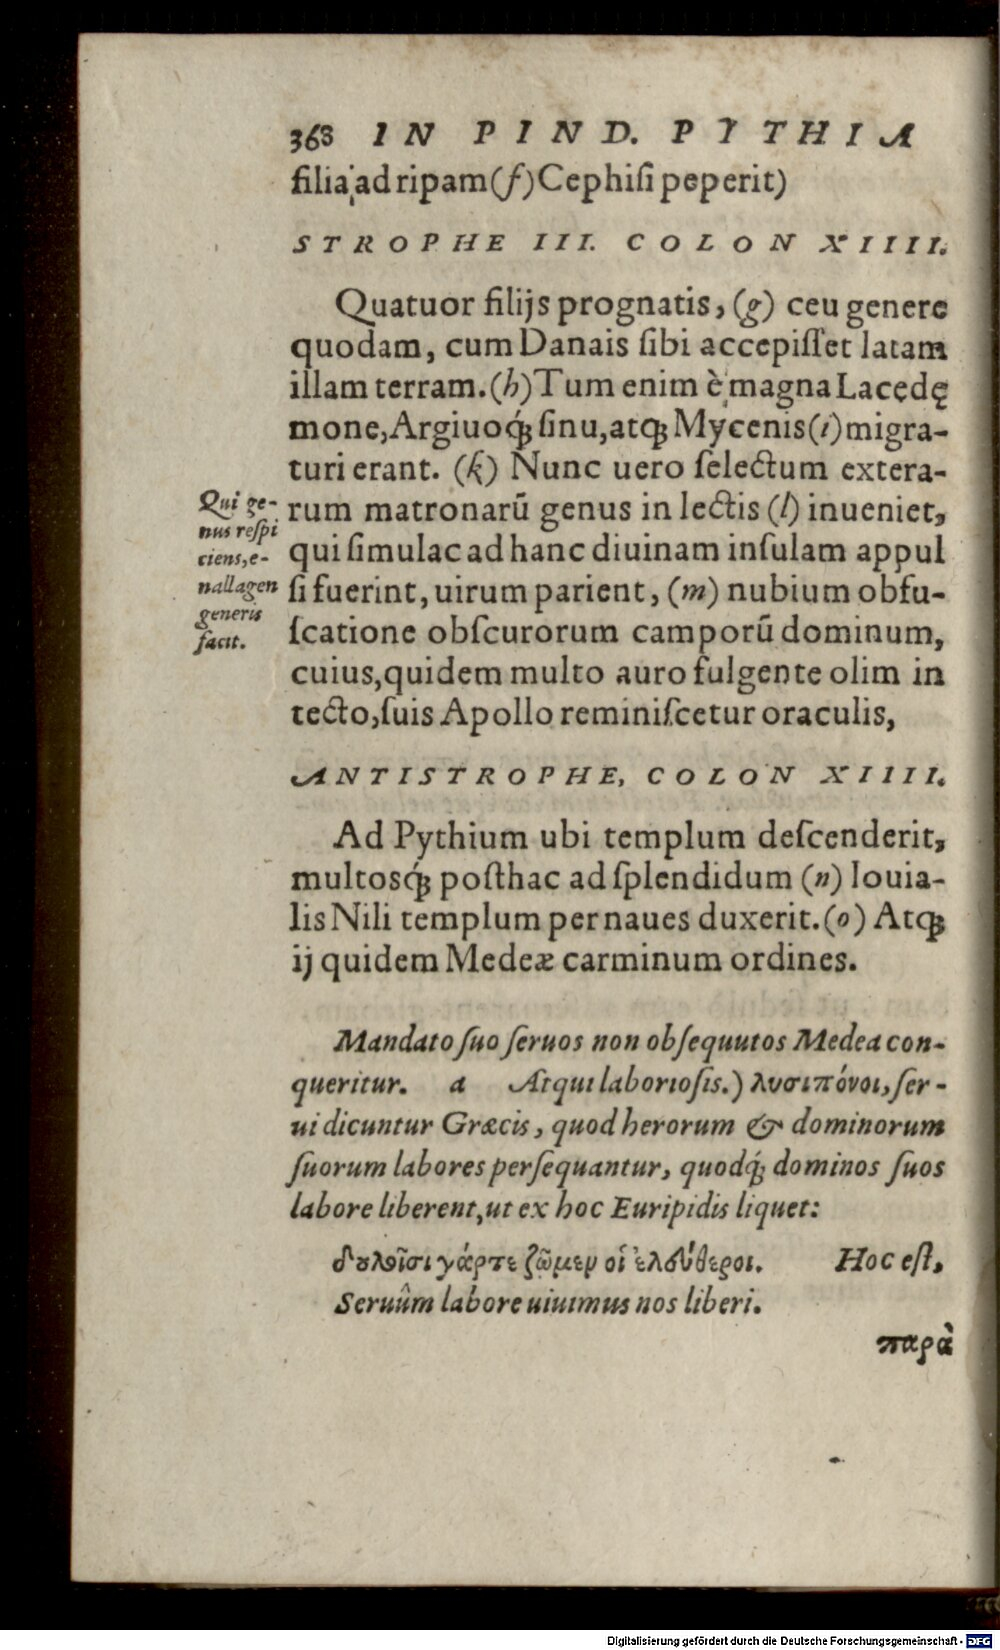 363 IN PIND. PYTHIA
filia ad ripam (f) Cephiſi peperit)
STROPHE III. COLON XIIII.
Quatuor filijs prognatis, (g) ceu genere
quodam, cum Danais ſibi accepiſſet latam
illam terram. (h) Tum enim è magna Lacędę
mone, Argiuoq́; ſinu, atq; Mycenis (i) migra-
turi erant. (k) Nunc uero ſelectum extera-
rum matronarũ genus in lectis (l) inueniet,
qui ſimulac ad hanc diuinam inſulam appul
ſi fuerint, uirum parient, (m) nubium obfu-
ſcatione obſcurorum camporũ dominum,
cuius, quidem multo auro fulgente olim in
tecto, ſuis Apollo reminiſcetur oraculis,
Qui ge-
nus reſpi
ciens, e-
nallagen
generis
facit.
ANTISTROPHE, COLON XIIII.
Ad Pythium ubi templum deſcenderit,
multosq́; poſthac ad ſplendidum (n) Iouia-
lis Nili templum per naues duxerit. (o) Atq;
ij quidem Medeæ carminum ordines.
Mandato ſuo ſeruos non obſequutos Medea con-
queritur. a Atqui laborioſis.) λυσιπόνοι, ſer-
ui dicuntur Græcis, quod herorum & dominorum
ſuorum labores perſequantur, quodq́; dominos ſuos
labore liberent, ut ex hoc Euripidis liquet:
δουλοῖσι γάρτε ζῶμεν οἱ ἐλεύθεροι. Hoc eſt,
Seruûm labore uiuimus nos liberi.
παρὰ
Digitalisierung gefördert durch die Deutsche Forschungsgemeinschaft - DFG